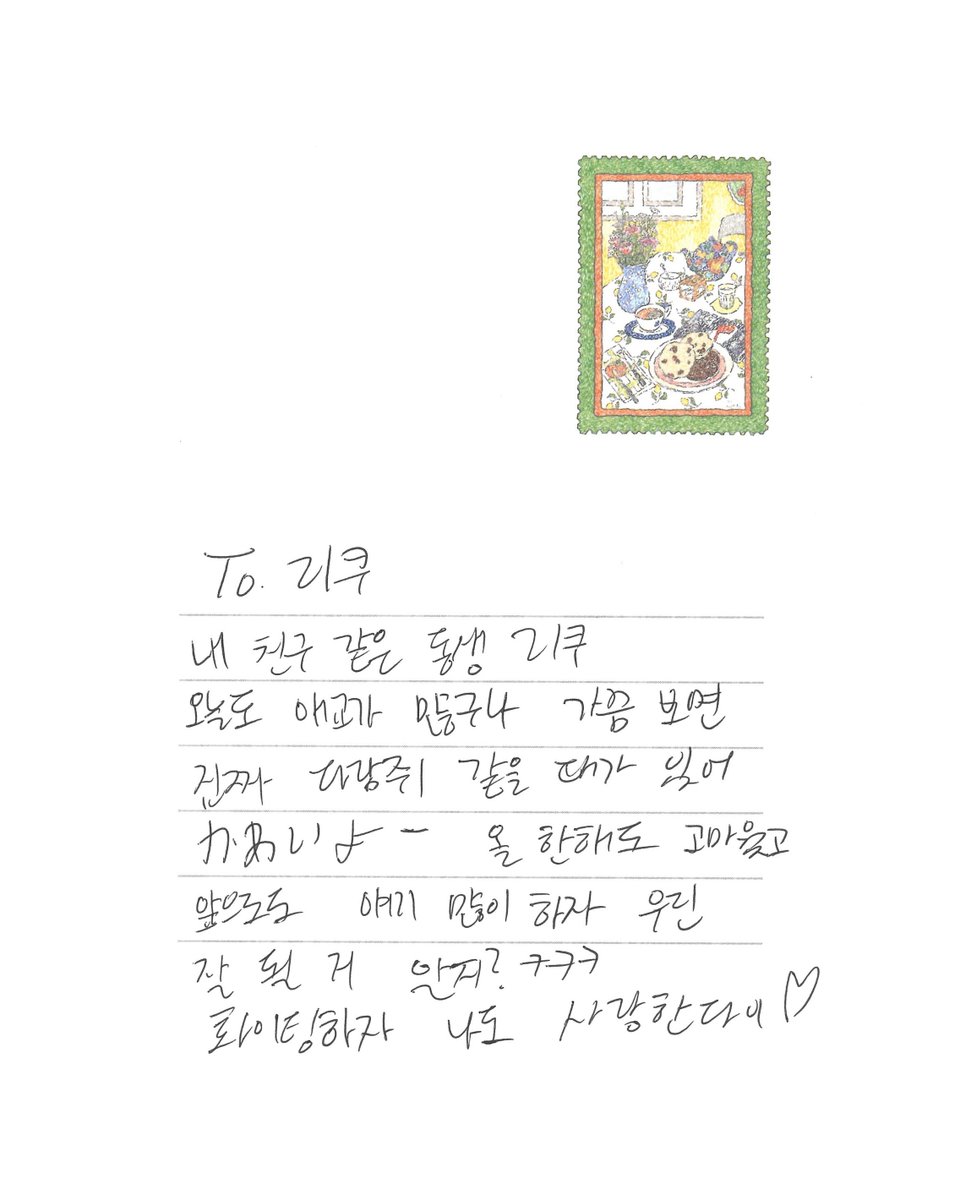 To. 리쿠
내 친구 같은 동생 리쿠
오늘도 애교가 많구나 가끔 보면
진짜 다람쥐 같을 때가 있어
かわいいよー 올 한해도 고마웠고
앞으로도 얘기 많이 하자 우린
잘 될 거 알지? ㅋㅋㅋ
화이팅하자 나도 사랑한다이 ♡